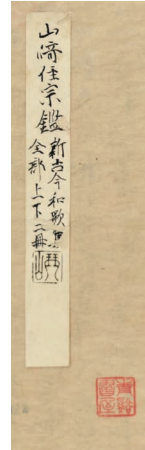 山崎住宗鑑
新古今和歌集
全部上下二冊